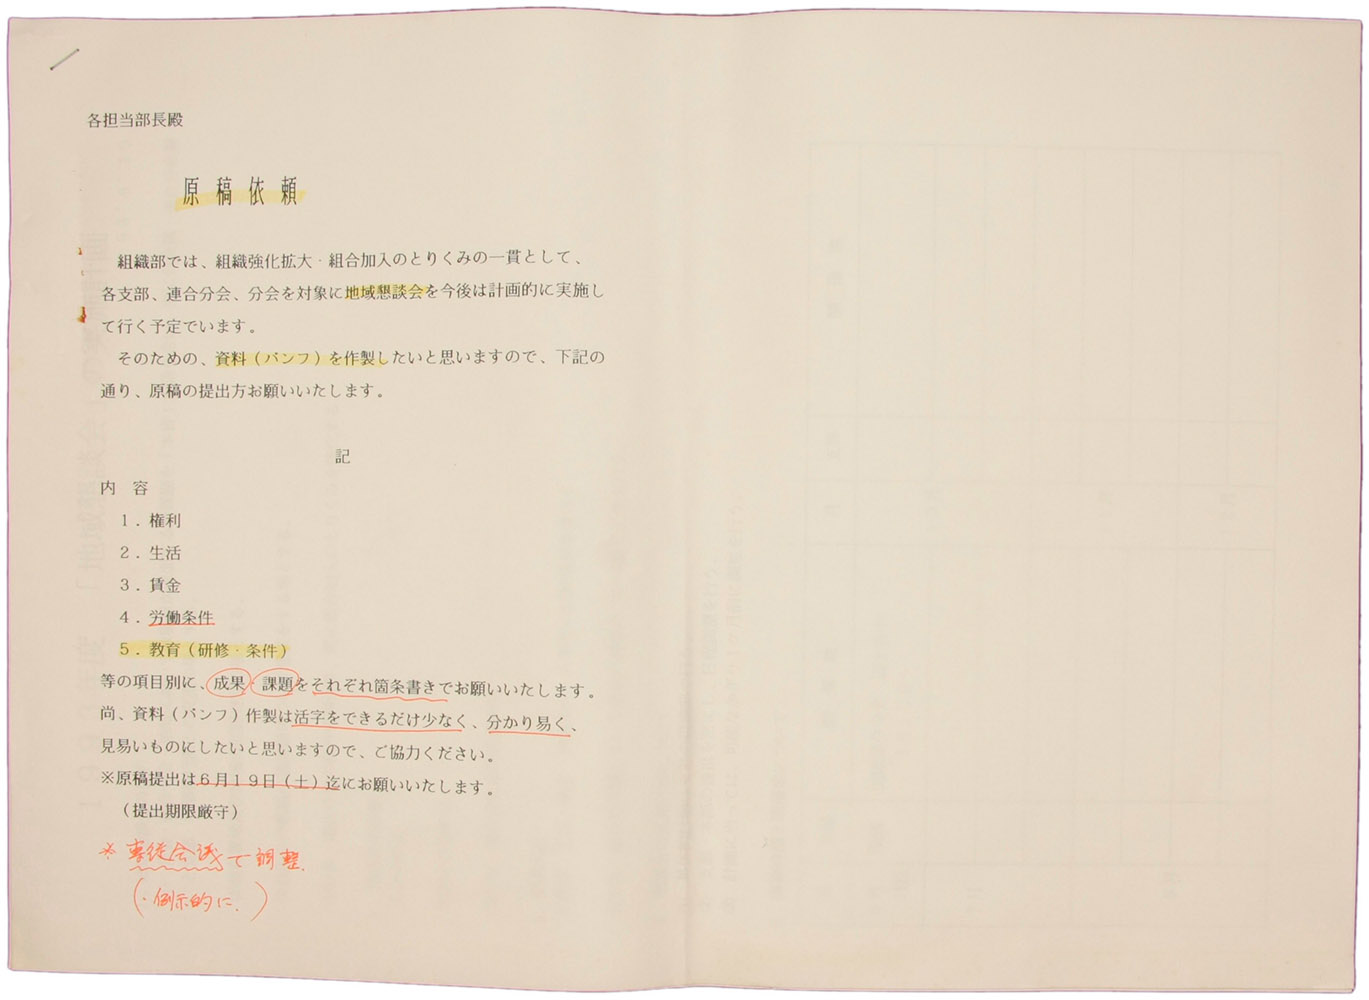 各担当部長殿
原稿依頼
組織部では、組織強化拡大・組合加入のとりくみの一貫として、
各支部、連合分会、分会を対象に地域懇談会を今後は計画的に実施し
て行く予定でいます。
そのための、資料（パンフ）を作製したいと思いますので、下記の
通り、原稿の提出方お願いいたします。
記
内　容
１．権利
２．生活
３．賃金
４．労働条件
５．教育（研修・条件）
等の項目別に、成果・課題をそれぞれ箇条書きでお願いいたします。
尚、資料（パンフ）作製は活字をできるだけ少なく、分かり易く、
見易いものにしたいと思いますので、ご協力ください。
※原稿提出は６月１９日（土）迄にお願いいたします。
（提出期限厳守）
※専従会議で調整.
（・例示的に.）